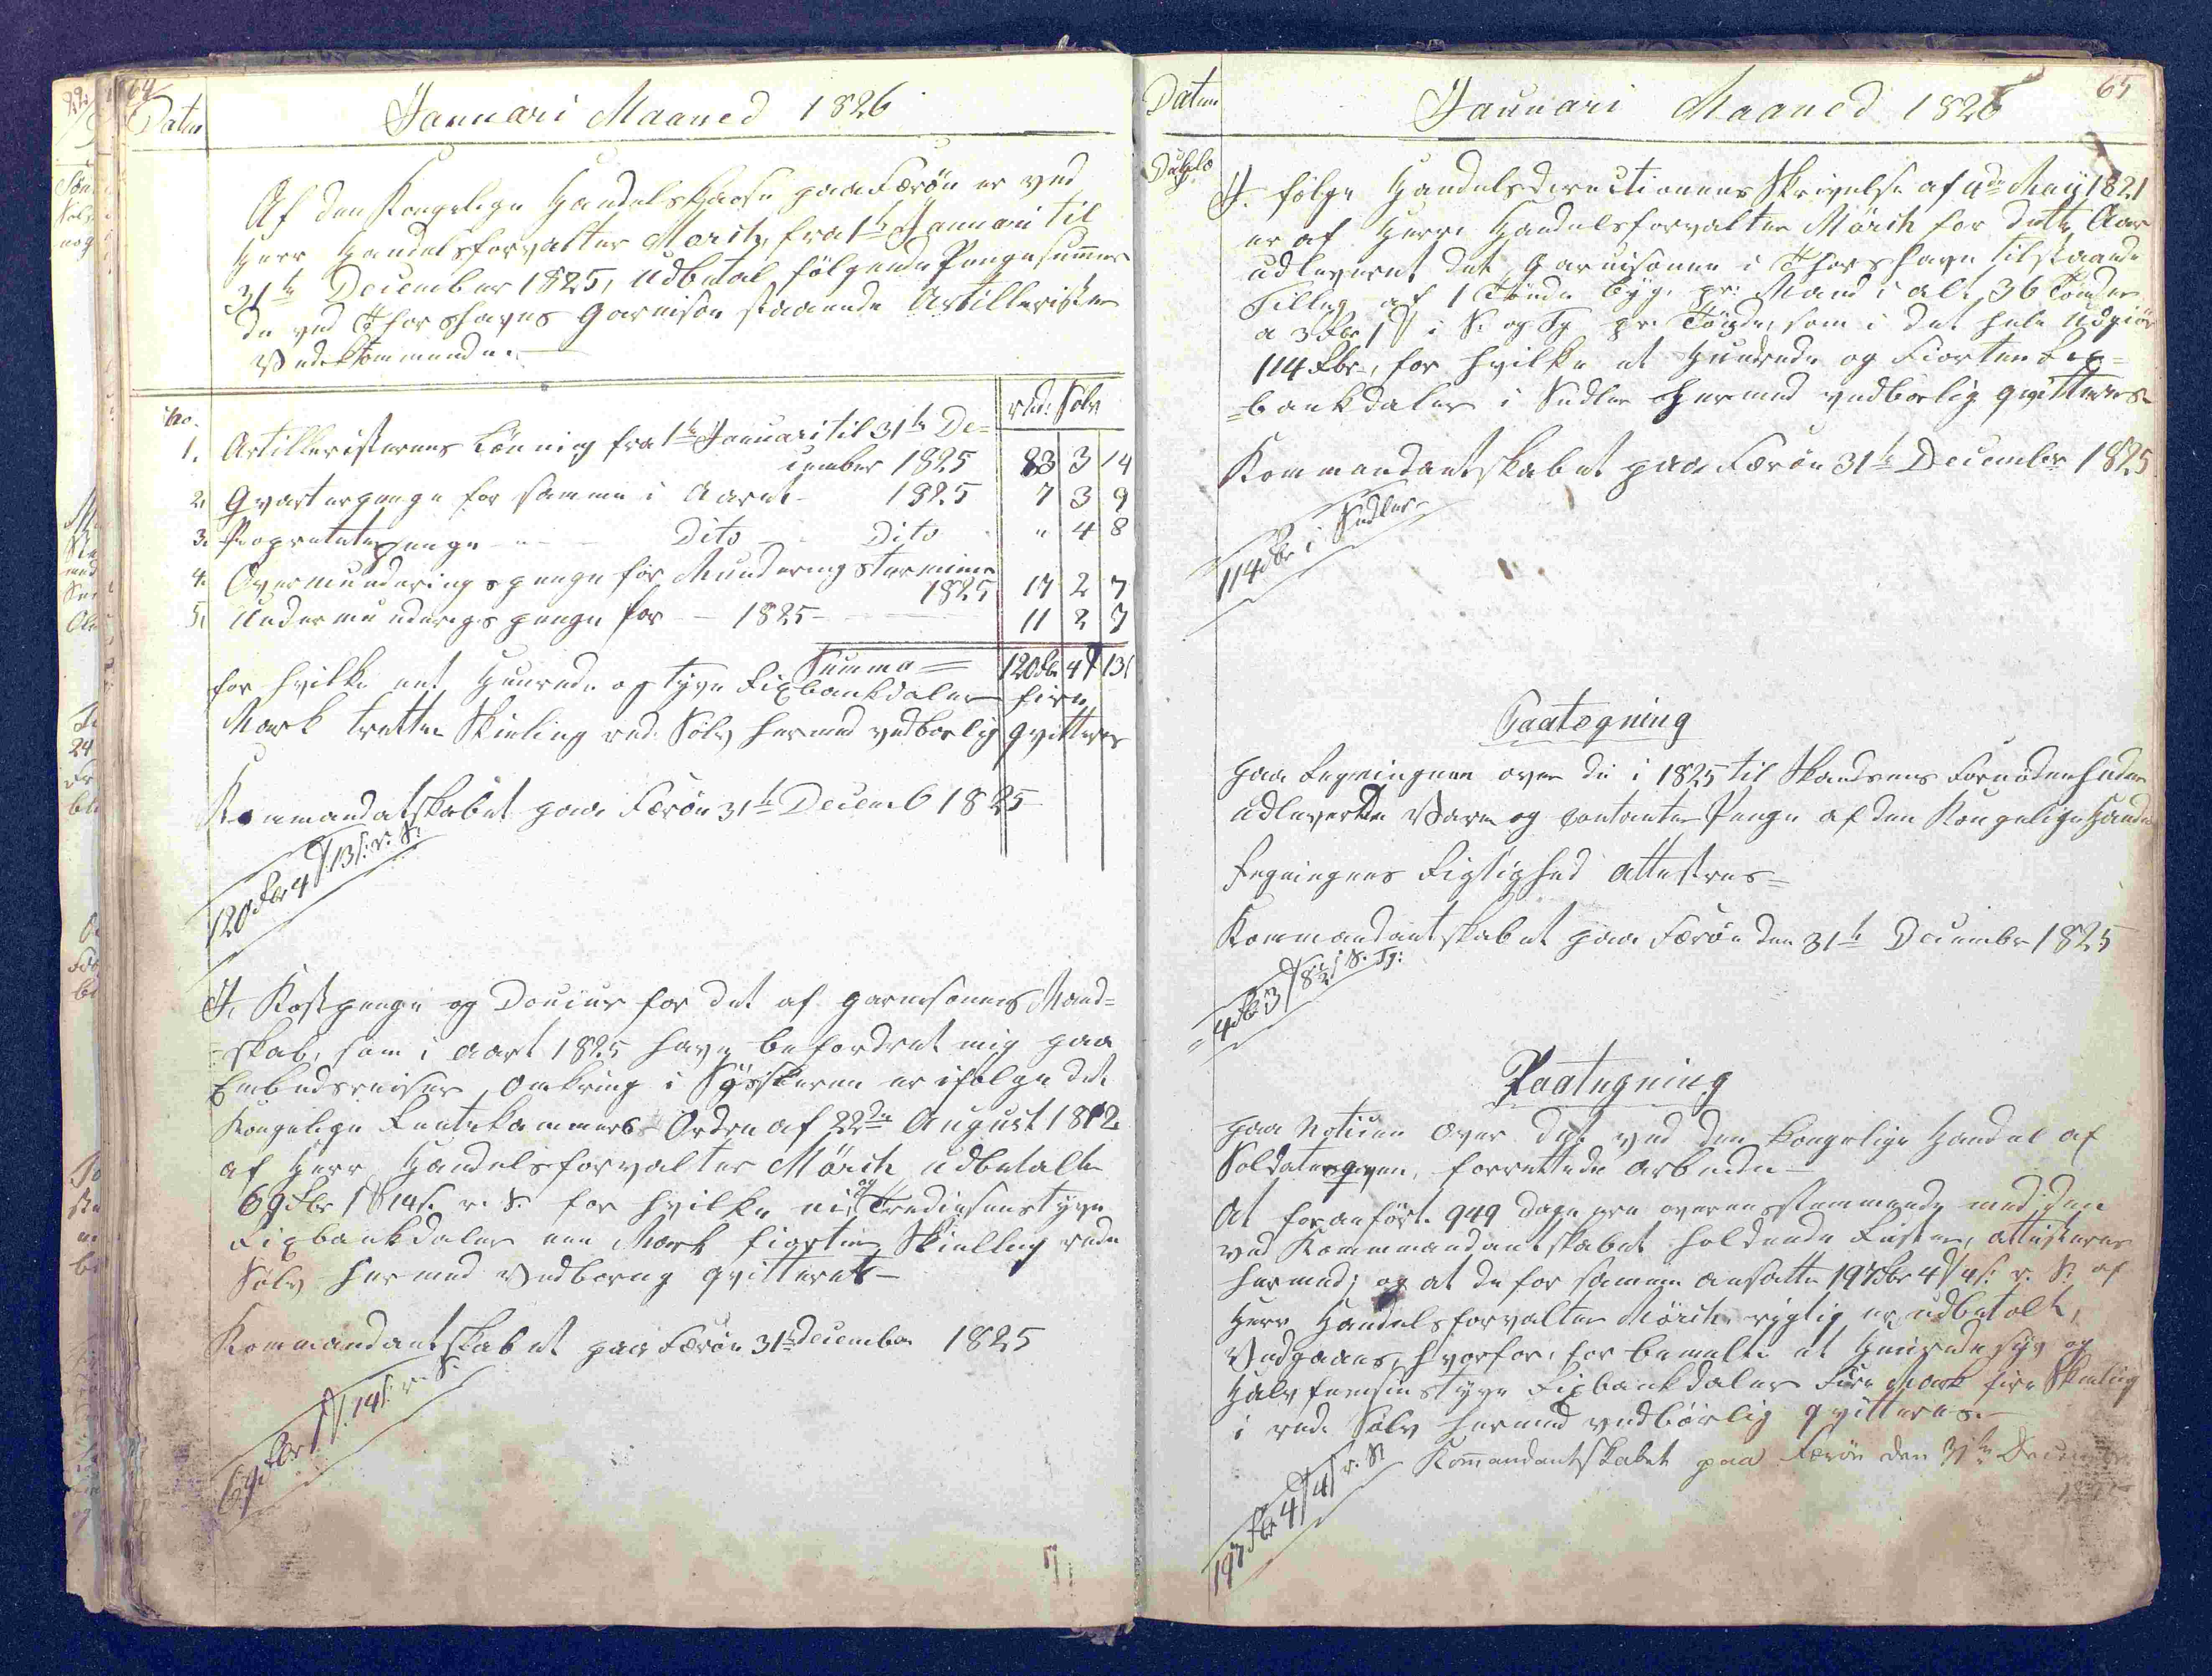 64
Datum
Januari Maaned 1826
Af den Kongelige Handels Kasse paa Færøe er ved
Herr Handelsforvalter Mørch, fra 1te Januari til
31te December 1825, udbetal følgende Penge summer
de ved Thorshavns Garnison staaende Artillerister
Vedkommende.
No.
rede Sølv
1. Artilleristernes Lønning fra 1te Januari til 31te De=
cember 1825 83 3 14
2. Qvarteerpenge for samme i Aaret 1825 7 3 9
3. Propretetspenge - - - Dito - - Dito " 4 8
4. Overmunderingspenge for Munderings terminen
1825 17 2 7
5. Undermunderings penge for - 1825 - 11 2 7
Summa = 120 Rbr 4 13
for hvilke eet Hunrede og tyve Rixbankdaler fire
Mark tretten Skieling rede Sølv hermed vedbørlig qvitteres
Kommandatskabet paa Færøe 31te Decemb 1825
120 Rbr 4 13 r. S.
I Kostpenge og Douceur for det af Garnisonens Mand=
=skab, som i Aaret 1825 have befordret mig paa
Embedsreiser omkring i Sysslerne er ifølge det
Kongelige Rentekammers Ordre af 22de August 1812
af Herr Handelsforvalter Mørch udbetalt
69 Rbr 1 14 s. r. S. for hvilke ni og Trediesenstyve
Rixbankdaler een Mark fiorten Skielling rede
Sølv hermed Vedbørlig qvitteres -
Kommandantskabet paa Færøe 31te December 1825
69 Rbr 1 14 s. r. S.
65
Datum
Januari Maaned 1826
I følge Handelsdirectionens Skrivelse af 4de May 1821
er af Herr Handelsforvalter Mørch for dette Aar
udleveret det Garnisonen i Thorshavn tilstaaede
Tillæg af 1 Tønde Byg pr: Mand i alt 36 Tønder
a 3 Rbr 1 i S. og Tg pr. Tønde, som i det hele udgiør
114 Rbr, for hvilke et Hundrede og Fiorten Rix=
=bankdaler i Sedler hermed vedbørlig qvitteres
Kommandantskabet paa Færøe 31te December 1825
114 Rbr i Sedler
Paategning
paa Regningen over de i 1825 til Skandsens Fornødenheder
udleverede Vare og contante Penge af den Kongelige Handel
Regningens Rigtighed attesteres =
Kommandantskabet paa Færøe den 31te December 1825
4 Rb 3 8½ S. Tg:
Paategning
paa Noticen over det ved den kongelige Handel af
Soldatergeven, forrettede Arbeide -
At foranførte 949 dage ere overensstemmende med den
ved Kommandantskabet holdende Lister, attesteres
hermed; og at de for samme ansatte 197 Rbr 4 4 s. r. S. af
Herr Handelsforvalter Mørch rigtig er udbetalt,
Vedgaaes, hvorfor, for bemelte et Hunrede syv og
Halvfemsinstyve Rixbankdaler Fire Mark fire Skieling
i rede Sølv hermed vedbørlig qvitteres.-
Kommandantskabet paa Færøe den 31te December
1825
197 Rbr 4 4 r. S.